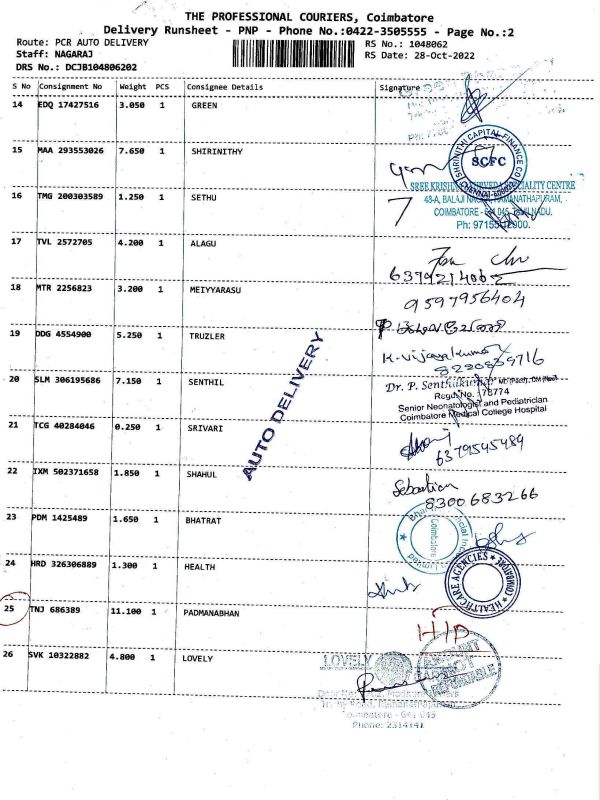 THE PROFESSIONAL COURIERS, Coimbatore
Delivery Runsheet - PNP - Phone No.:0422-3505555 - Page No.:2
Route: PCR AUTO DELIVERY
RS No.: 1048062
Staff: NAGARAJ
RS Date: 28-Oct-2022
DRS No.: DCJB104806202
S No Consignment No Weight PCS Consignee Details Signature
14 EDQ 17427516 3.050 1 GREEN
15 MAA 293553026 7.650 1 SHIRINITHY
SHRINITHI CAPITAL FINANCE CO
SCFC
16 TMG 200303589 1.250 1 SETHU
COIMBATORE
Ph:
17 TVL 2572705 4.200 1 ALAGU
18 MTR 2256823 3.200 1 MEIYYARASU
9597956404
19 DDG 4554900 5.250 1 TRUZLER
K. Vijayakumar
20 SLM 306195686 7.150 1 SENTHIL
Senior Neonatologist and Pediatrician
Coimbatore Medical College Hospital
21 TCG 40284046 0.250 1 SRIVARI
6379545489
22 IXM 502371658 1.850 1 SHAHUL
Sebastian
8300683266
23 PDM 1425489 1.650 1 BHATRAT
Coimbatore
24 HRD 326306889 1.300 1 HEALTH
HEALTHCARE AGENCIES COIMBATORE
25 TNJ 686389 11.100 1 PADMANABHAN
26 SVK 10322882 4.800 1 LOVELY
LOVELY
Coimbatore - 641 045
Phone: 2314141
AUTO DELIVERY